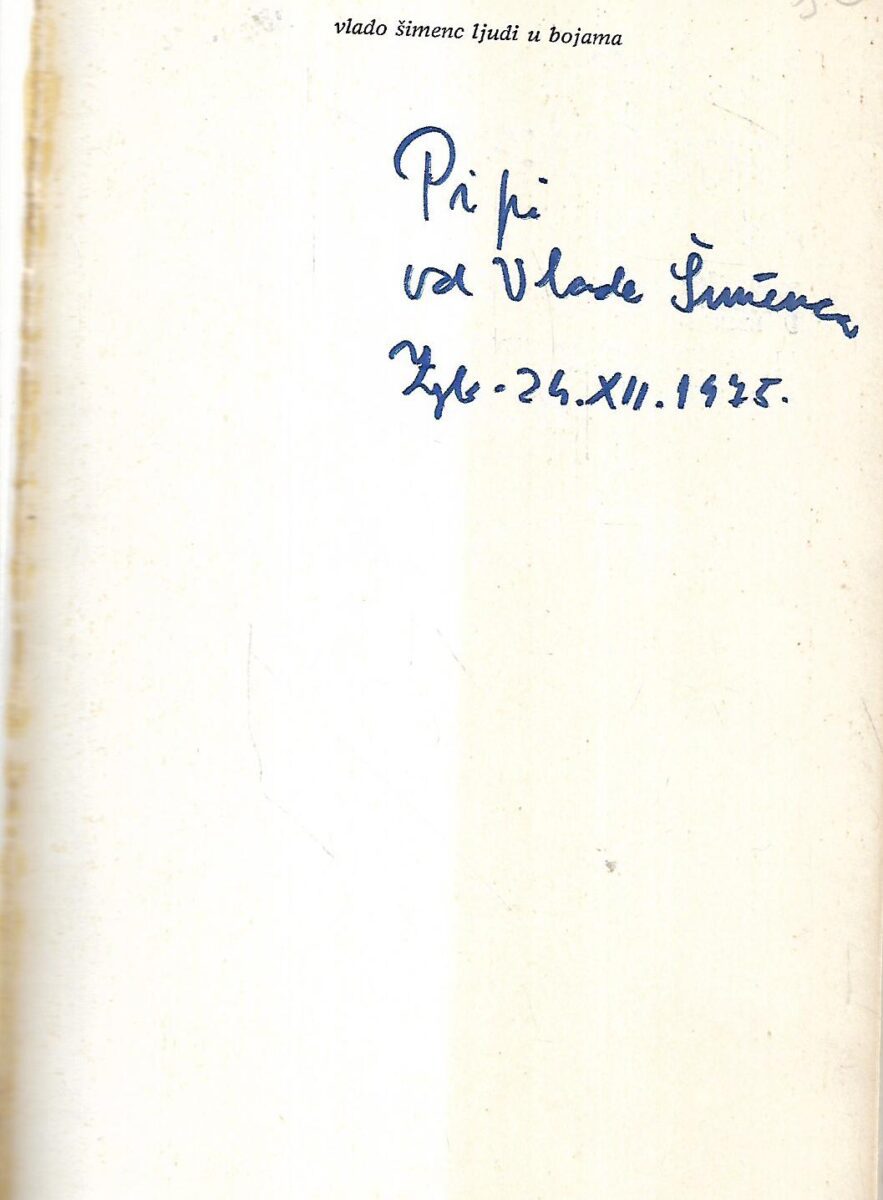 vlado šimenc ljudi u bojama
Pipi
od Vlade Šimenca
Zgb - 24.XII.1975.